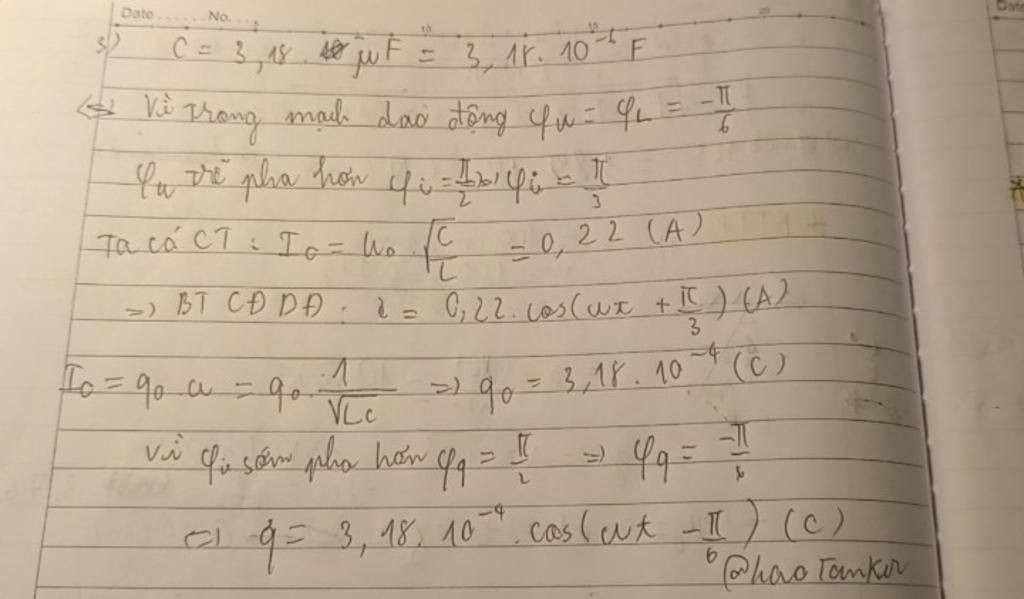 Date ...... No. ...
5 10 15 20
3) C = 3,18 . μF = 3,18.10⁻⁶ F
<=> Vì trong mạch dao động φu = φL = -π/6
φu trễ pha hơn φi = π/2 φi = π/3
Ta có CT : I₀ = U₀.√(C/L) = 0,22 (A)
=> BT CĐ DĐ : i = 0,22.cos(ωt + π/3) (A)
I₀ = q₀.ω = q₀.1/√LC => q₀ = 3,18.10⁻⁴ (C)
Vì φi sớm pha hơn φq = π/2 => φq = -π/6
<=> q = 3,18.10⁻⁴.cos(ωt - π/6) (C)
@haoTanker
Date